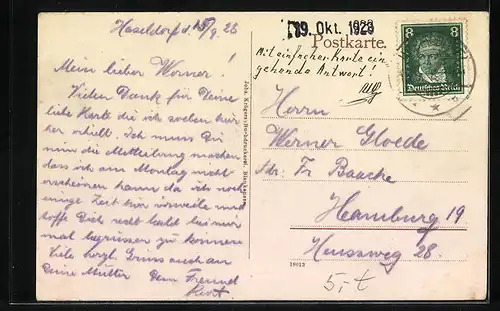 Haseldorf d. 15/9 28
Mein lieber Werner!
Vielen Dank für Deine
liebe Karte die ich soeben hier
her erhielt. Ich muss Dir
nun die Mitteilung machen
dass ich am Montag nicht
erscheinen kann da ich noch
einige Zeit hier verweile und
hoffe Dich recht bald bei mir
mal begrüssen zu können
Viele herzl. Gruss auch an
Deine Mutter Dein Freund
Kurt
Johs. Krögers Buchdruckerei, Blankenese
19. Okt. 1928
Postkarte.
Mit einfacher Karte ein
gehende Antwort!
8 8
Deutsches Reich
Herrn
Werner Gloede
Adr: Fr Baacke
Hamburg 19
Heussweg 28.
18613
5,-t